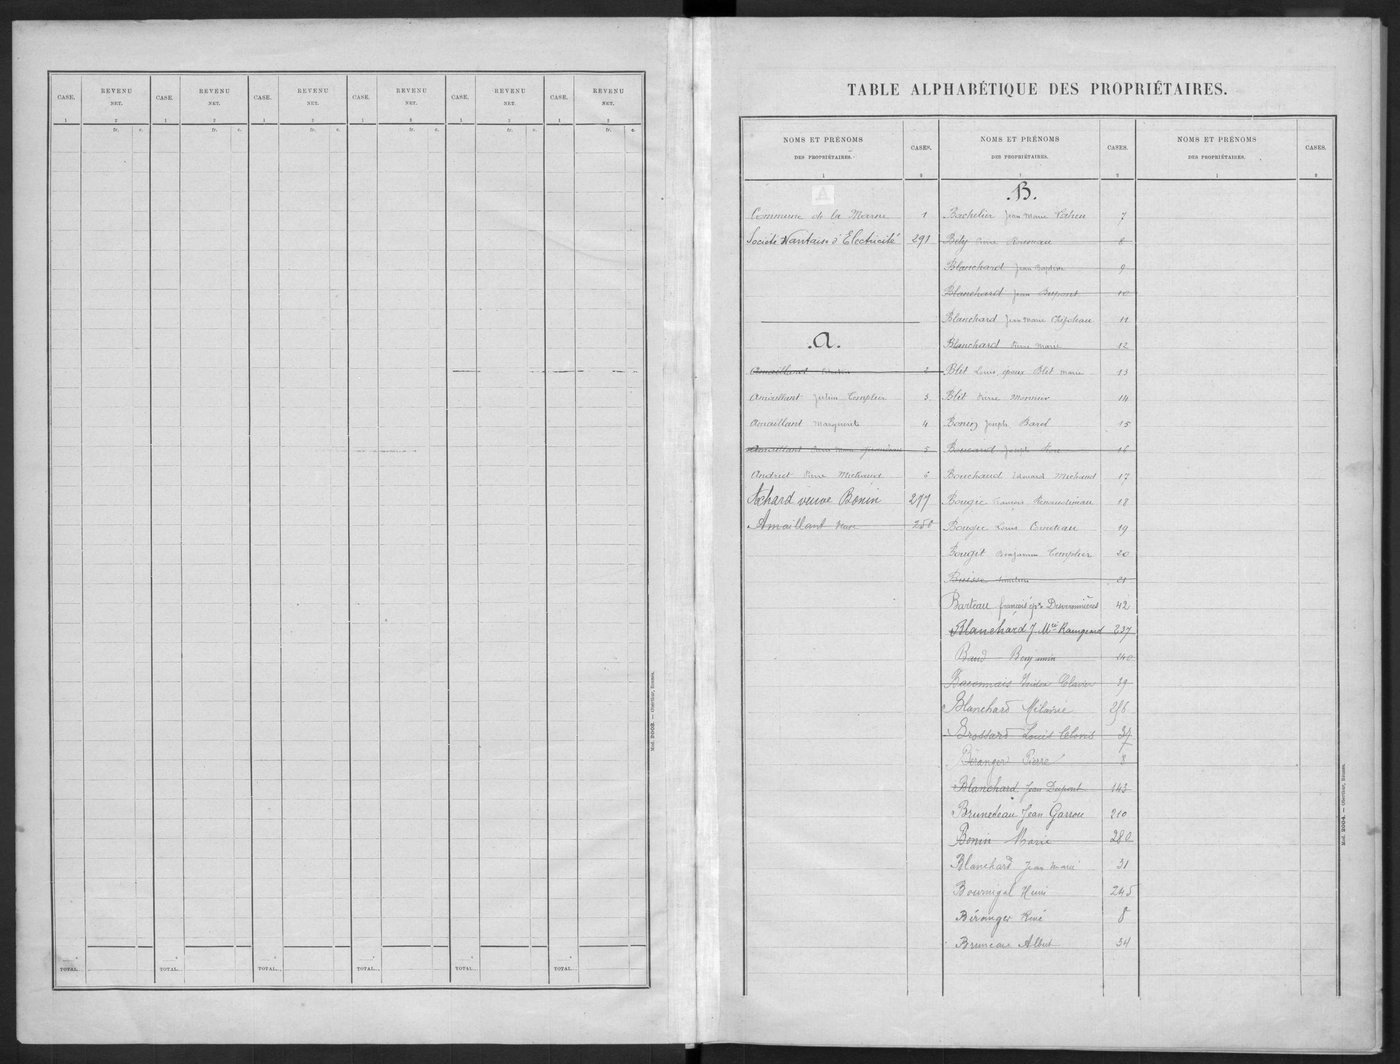 CASE. REVENU NET. CASE. REVENU NET. CASE. REVENU NET. CASE. REVENU NET. CASE. REVENU NET. CASE. REVENU NET.
1 2 1 2 1 2 1 2 1 2 1 2
fr. c. fr. c. fr. c. fr. c. fr. c. fr. c.
TOTAL. TOTAL. TOTAL. TOTAL. TOTAL. TOTAL.
Mod. 2003. — Oberthur, Rennes.
TABLE ALPHABÉTIQUE DES PROPRIÉTAIRES.
NOMS ET PRÉNOMS DES PROPRIÉTAIRES. CASES. NOMS ET PRÉNOMS DES PROPRIÉTAIRES. CASES. NOMS ET PRÉNOMS DES PROPRIÉTAIRES. CASES.
1 2 1 2 1 2
A
Commune de la Marne 1
Société Nantaise d'Electricité 291
.A.
Amaillant 2
Amaillant Julien Templier 3
Amaillant Marguerite 4
Amaillant Pierre Marie 5
Andriet Pierre Michaud 6
Achard veuve Bonin 277
Amaillant Pierre 280
.B.
Bachelier Jean Marie 7
Bély Pierre 8
Blanchard Jean Baptiste 9
Blanchard Jean Dupont 10
Blanchard Jean Marie 11
Blanchard Pierre Marie 12
Blet Louis époux Blet Marie 13
Blet Pierre Monnier 14
Joseph Barel 15
Joseph 16
Bouchaud Edmond Michaud 17
Bougie François Renaudineau 18
Bougie Louis 19
Bouget Benjamin Templier 20
Buisse 21
Barteau François 42
Blanchard J. Mie Raingeard 237
Baud Benjamin 240
Baconnais Victor Clavier 39
Blanchard Mélanie 256
Brossard Louis Clovis 37
Béranger Pierre 8
Blanchard Jean Dupont 143
Brunedeau Jean Garrou 210
Bonin Marie 280
Blanchard Jean Marie 31
Bournigal Henri 245
Béranger René 8
Bruneau Albert 34
Mod. 2004. — Oberthur, Rennes.